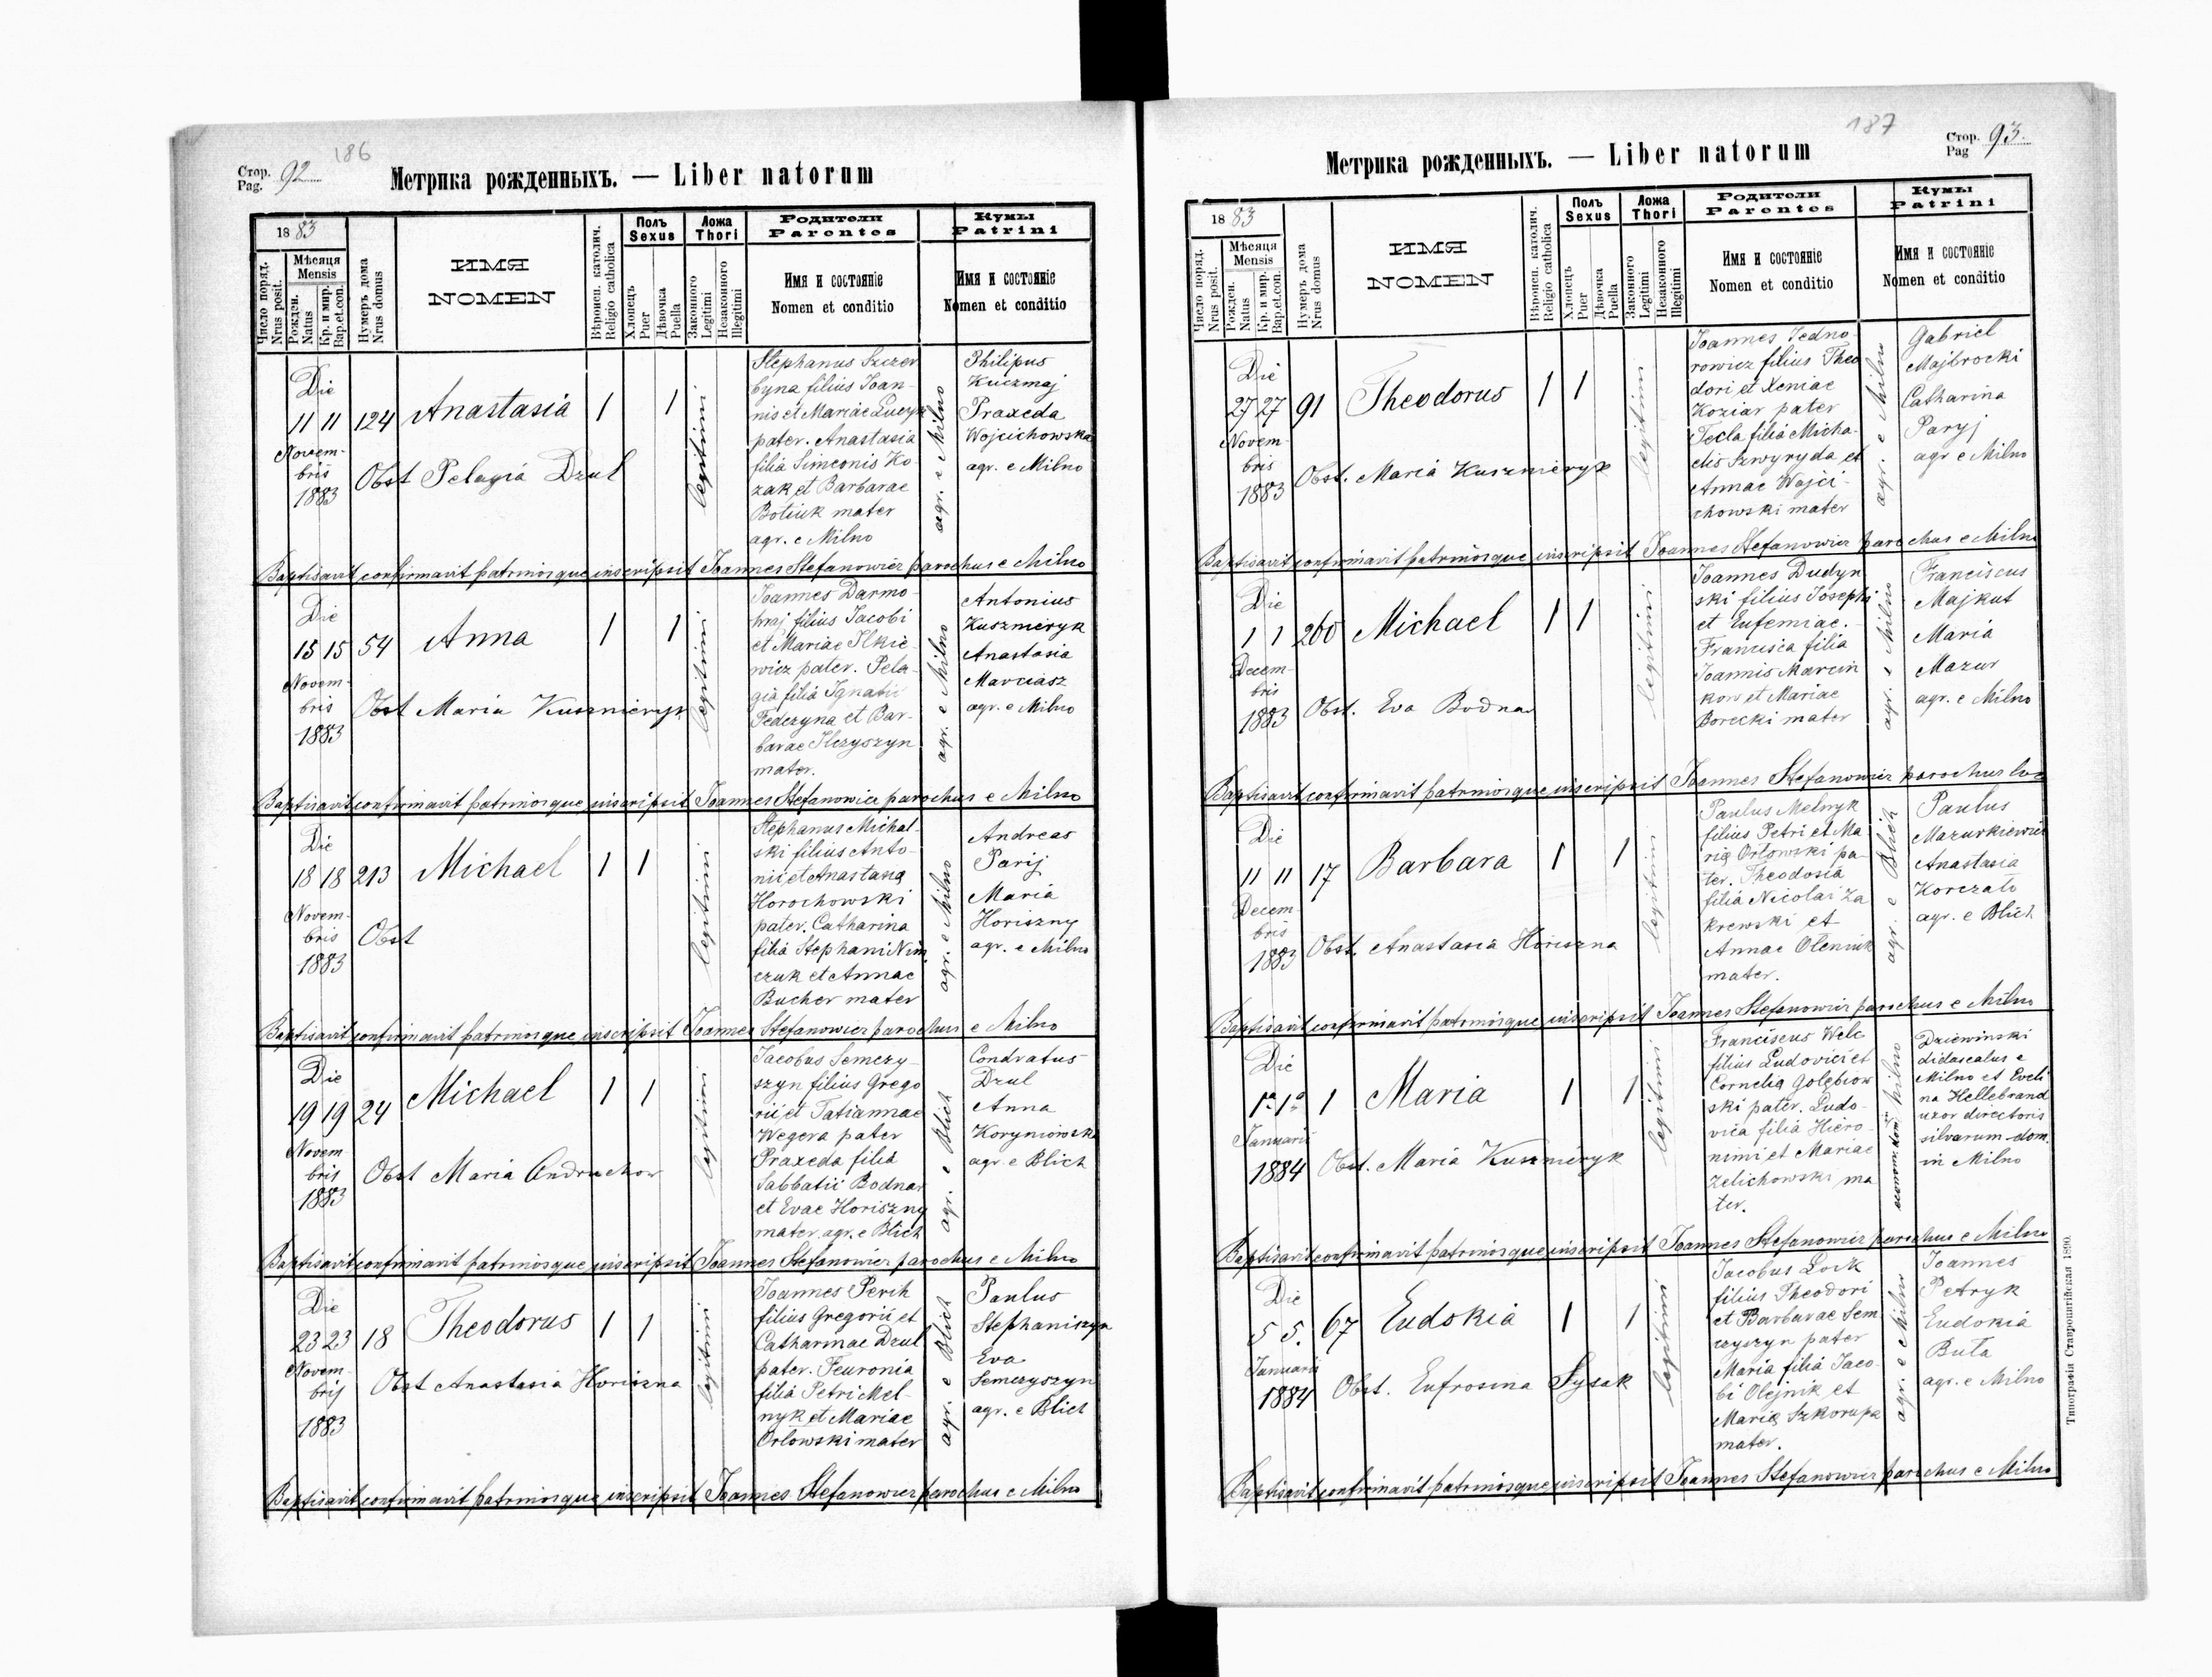 186
Стор.
Pag. 92
Метрика рожденныхъ. — Liber natorum
1883
Число поряд.
Nrus posit.
Мѣсяця
Mensis
Рожден.
Natus
Кр. и мир.
Bap. et. con.
Нумеръ дома
Nrus domus
ИМЯ
NOMEN
Вѣроисп. католич.
Religio catholica
Полъ
Sexus
Хлопецъ
Puer
Дѣвочка
Puella
Ложа
Thori
Законного
Legitimi
Незаконного
Illegitimi
Родители
Parentes
Имя и состояніе
Nomen et conditio
Кумы
Patrini
Имя и состояніе
Nomen et conditio
Die
11 11
Novem-
bris
1883
124
Anastasia
1
1
Obst Pelagia Dzul
legitimi
Stephanus Szczer
byna filius Joan-
nis et Mariae
pater. Anastasia
filia Simeonis Ko-
zak et Barbarae
Botiuk mater
agr. e Milno
agr. e Milno
Philipus
Kuczmaj
Praxeda
Wojcichowska
agr. e Milno
Baptisavit confirmavit patrinosque inscripsit Joannes Stefanowicz parochus e Milno
Die
15 15
Novem-
bris
1883
54
Anna
1
1
Obst Maria Kuszmeryk
legitimi
Joannes Darmo-
hraj filius Jacobi
et Mariae Ilkie-
wicz pater. Pela-
gia filia Ignatii
Fedczyna et Bar-
barae Ilczyszyn
mater.
agr. e Milno
Antonius
Kuszmeryk
Anastasia
Marciasz
agr. e Milno
Baptisavit confirmavit patrinosque inscripsit Joannes Stefanowicz parochus e Milno
Die
18 18
Novem-
bris
1883
213
Michael
1
1
Obst
legitimi
Stephanus Michal-
ski filius Anto-
nii et Anastasia
Horochowski
pater. Catharina
filia Stephani Nim
czuk et Annae
Bucher mater
agr. e Milno
Andreas
Parij
Maria
Horiszny
agr. e Milno
Baptisavit confirmavit patrinosque inscripsit Joannes Stefanowicz parochus e Milno
Die
19 19
Novem
bris
1883
24
Michael
1
1
Obst Maria Andruchow
legitimi
Jacobus Semczy-
szyn filius Grego
rii et Tatiannae
Wegera pater
Praxeda filia
Sabbatii Bodnar
et Evae Horiszny
mater. agr. e Blich
agr. e Blich
Condratus
Dzul
Anna
Koryniowska
agr. e Blich
Baptisavit confirmavit patrinosque inscripsit Joannes Stefanowicz parochus e Milno
Die
23 23
Novem-
brij
1883
18
Theodorus
1
1
Obst Anastasia Horiszna
legitimi
Joannes Perih
filius Gregorii et
Catharinae Dzul
pater. Feuronia
filia Petri Mel-
nyk et Mariae
Orlowski mater
agr. e Blich
Paulus
Stephaniszyn
Eva
Semczyszyn
agr. e Blich
Baptisavit confirmavit patrinosque inscripsit Joannes Stefanowicz parochus e Milno
187
Стор.
Pag 93.
Метрика рожденныхъ. — Liber natorum
1883
Число поряд.
Nrus posit.
Мѣсяця
Mensis
Рожден.
Natus
Кр. и мир.
Bap. et. con.
Нумеръ дома
Nrus domus
ИМЯ
NOMEN
Вѣроисп. католич.
Religio catholica
Полъ
Sexus
Хлопецъ
Puer
Дѣвочка
Puella
Ложа
Thori
Законного
Legitimi
Незаконного
Illegitimi
Родители
Parentes
Имя и состояніе
Nomen et conditio
Кумы
Patrini
Имя и состояніе
Nomen et conditio
Die
27 27
Novem-
bris
1883
91
Theodorus
1
1
Obst. Maria Kuszmeryk
legitimi
Joannes Jedno-
rowicz filius Theo
dori et Xeniae
Koziar pater
Tecla filia Micha-
elis Szwyryda et
Annae Wojci-
chowski mater
agr. e Milno
Gabriel
Majbrocki
Catharina
Paryj
agr e Milno
Baptisavit confirmavit patrinosque inscripsit Joannes Stefanowicz parochus e Milno
Die
1 1
Decem-
bris
1883
260
Michael
1
1
Obst. Eva Bodnar
legitimi
Joannes Dudyn
ski filius Josephi
et Eufemiae.
Francisca filia
Joannis Marcin
kow et Mariae
Borecki mater
agr. e Milno
Franciscus
Majkut
Maria
Mazur
agr. e Milno
Baptisavit confirmavit patrinosque inscripsit Joannes Stefanowicz parochus loci
Die
11 11
Decem
bris
1883
17
Barbara
1
1
Obst. Anastasia Horiszna
legitimi
Paulus Melnyk
filius Petri et Ma
ria Orlowski pa-
ter. Theodosia
filia Nicolai Za
krewski et
Annae Oleniuk
mater.
agr. e Blich
Paulus
Mazurkiewicz
Anastasia
Korczato
agr. e Blich
Baptisavit confirmavit patrinosque inscripsit Joannes Stefanowicz parochus e Milno
Die
1a 1a
Januarii
1884
1
Maria
1
1
Obst. Maria Kuszmeryk
legitimi
Franciscus Welc
filius Ludovici et
Cornelia Golębiow
ski pater. Ludo-
vica filia Hiero-
nimi et Mariae
Zelichowski ma
ter.
econom. dom. Milno
Dziewinski
didascalus e
Milno et Eveli
na Hellebrand
uxor directoris
silvarum dom.
in Milno
Baptisavit confirmavit patrinosque inscripsit Joannes Stefanowicz parochus e Milno
Die
5 5.
Januarii
1884
67
Eudokia
1
1
Obst. Eufrosina Sysak
legitimi
Jacobus Loik
filius Theodori
et Barbarae Sem
czyszyn pater
Maria filia Jaco-
bi Olejnik et
Maria Szkorupa
mater.
agr. e Milno
Joannes
Petryk
Eudokia
Buta
agr. e Milno
Baptisavit confirmavit patrinosque inscripsit Joannes Stefanowicz parochus e Milno
Типографія Ставропигійская 1890.